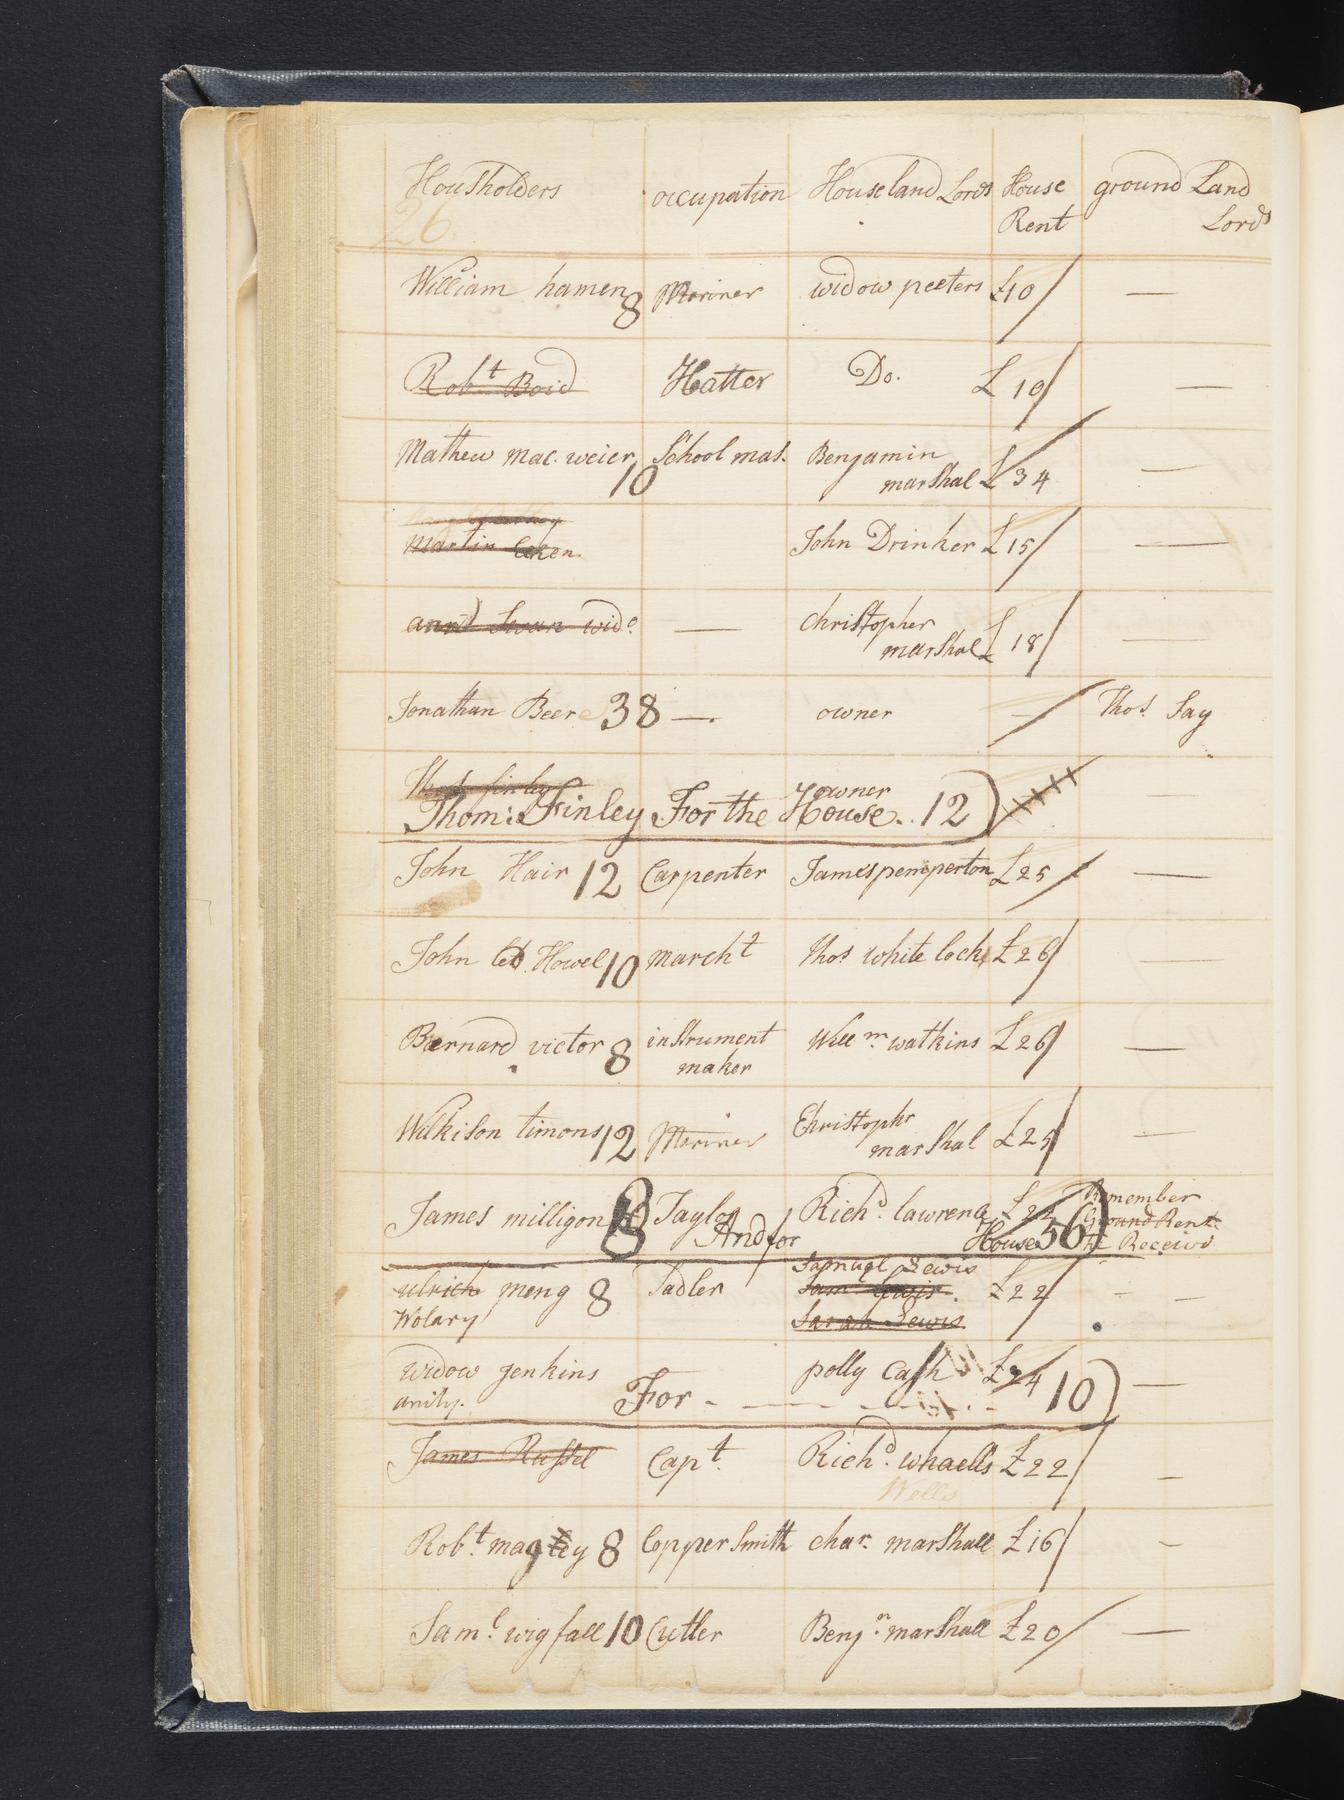 Housholders occupation House land Lords House Rent ground Land Lords
26
William hamen 8 Mariner widow peeters £10
Robt Boid Hatter Do. £10
Mathew mac. weier 10 School mas. Benjamin marshal £34
Martin John Drinker £15
Swan wide. — christopher marshal £18
Jonathan Beere 38 — owner — Thos. Say
Thos finley owner
Thom: Finley For the House.. 12
John Hair 12 Carpenter James pemperton £25
John Howel 10 marcht Thos white lock £26
Bernard victor 8 instrument maker Willm watkins £26
Wilkison timons 12 Mariner Christophr marshal £25
James milligon 8 Taylor Richd. lawrence £22 Remember
And for House 56 Ground Rent
be Received
ulrich meng 8 Sadler Samuel Lewis £22
Wolary Sarah Lewis
widow jenkins polly Cash £24
For 10
James Russel Capt. Richd. whaells £22
Wells
Robt. 8 Copper Smith char. marshall £16
Saml. wigfall 10 Cutler Benjn. marshall £20